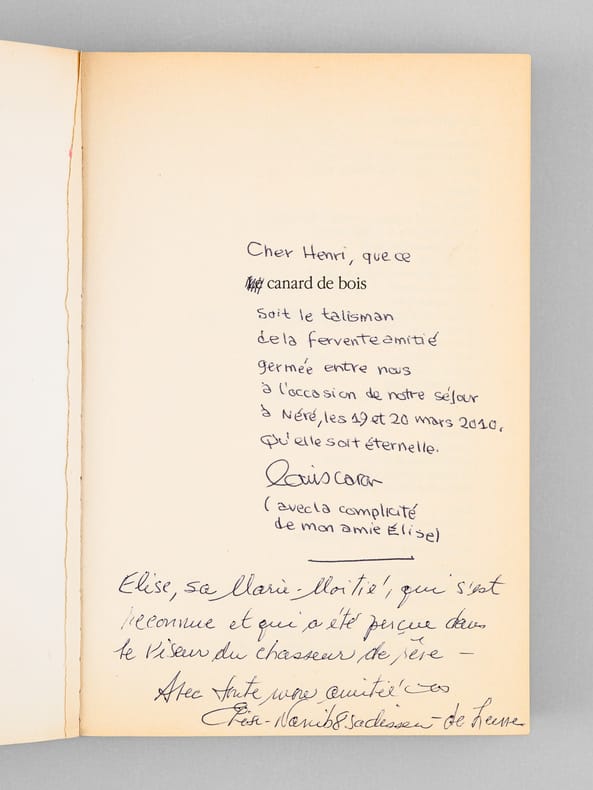 Cher Henri, que ce
canard de bois
soit le talisman
de la fervente amitié
germée entre nous
à l'occasion de notre séjour
à Néré, les 19 et 20 mars 2010.
Qu'elle soit éternelle.
Louis Caron
(avec la complicité
de mon amie Élise)
Elise, sa Marie-Moitié, qui s'est
reconnue et qui a été perçue dans
le viseur du chasseur de rêve -
Avec toute mon amitié
Elise